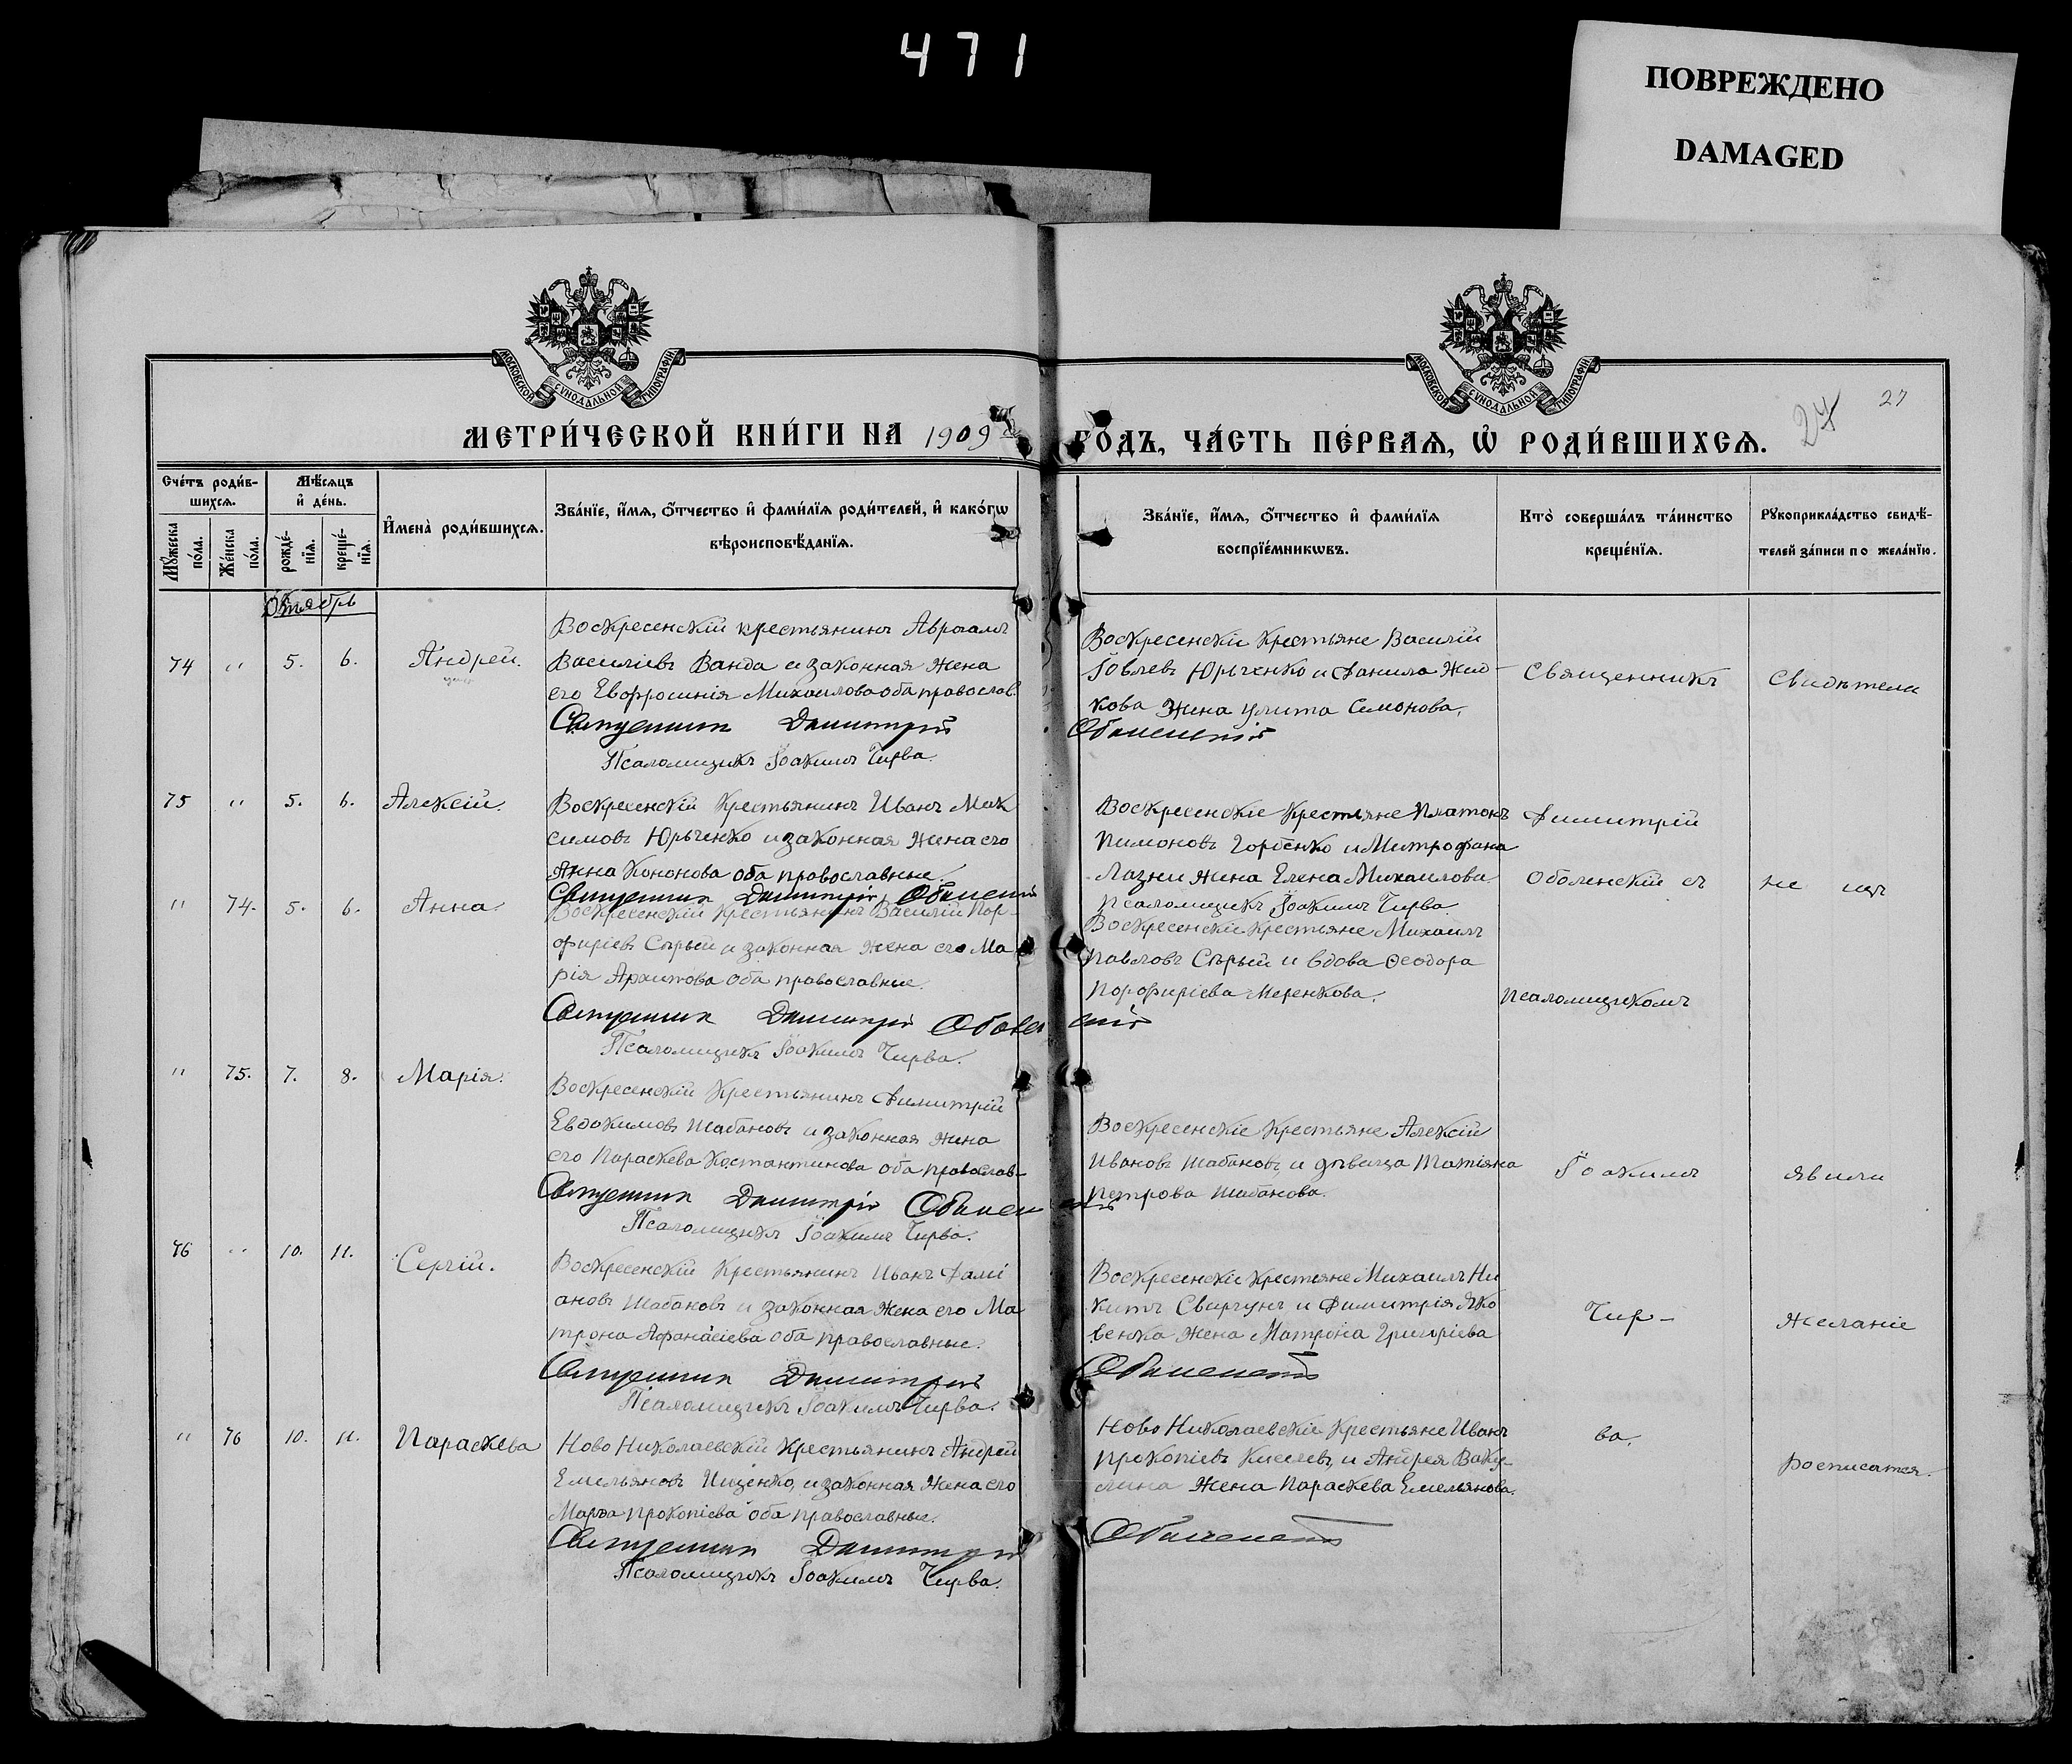 471
ПОВРЕЖДЕНО
DAMAGED
МОСКОВСКОЙ СѴНОДАЛЬНОЙ ТИПОГРАФІИ
МОСКОВСКОЙ СѴНОДАЛЬНОЙ ТИПОГРАФІИ
27
24
МЕТРИ́ЧЕСКОЙ КНИ́ГИ НА 1909
ГОДЪ, ЧА́СТЬ ПЕ́РВАѦ, Ѡ҆ РОДИ́ВШИХСѦ.
Сче́тъ роди́в-
шихсѧ.
Мѣ́сѧцъ
и҆ де́нь.
Мꙋ́жеска по́ла.
Же́нска по́ла.
рожде́-
нїѧ.
креще́-
нїѧ.
И҆мена̀ роди́вшихсѧ.
Зва́нїе, и҆́мѧ, ѻ҆́тчество и҆ фами́лїѧ роди́телей, и҆ како́гѡ
вѣроисповѣ́данїѧ.
Зва́нїе, и҆́мѧ, ѻ҆́тчество и҆ фами́лїѧ
воспрїе́мникѡвъ.
Кто̀ соверша́лъ та́инство
креще́нїѧ.
Рꙋкоприкла́дство свидѣ́-
телей за́писи по жела́нїю.
Октябрь
74 " 5. 6. Андрей.
Воскресенскій крестьянинъ Авраамъ
Василіевъ Ванда и законная жена
его Евфросинія Михаилова оба православ.
Священникъ Димитрій Оболенскій
Псаломщикъ Іоакимъ Чирва.
Воскресенскіе крестьяне Василій
Іовлевъ Юрьченко и Данила Жид-
кова жена Улита Симонова.
Священникъ
Свидѣтели
75 " 5. 6. Алексій.
Воскресенскій крестьянинъ Иванъ Мак
симовъ Юрьченко и законная жена его
Анна Кононова оба православные.
Священникъ Димитрій Оболенскій
Воскресенскіе крестьяне Платонъ
Пимоновъ Горбенко и Митрофана
Лазни жена Елена Михаилова.
Псаломщикъ Іоакимъ Чирва.
Димитрій
Оболенскій съ
не изъ
" 74. 5. 6. Анна.
Воскресенскій крестьянинъ Василій Пор-
фиріевъ Сѣрый и законная жена его Ма
рія Архипова оба православные.
Священникъ Димитрій Оболенскій
Псаломщикъ Іоакимъ Чирва.
Воскресенскіе крестьяне Михаилъ
Павловъ Сѣрый и вдова Ѳеодора
Порфиріева Меренкова.
Псаломщикомъ
" 75. 7. 8. Марія.
Воскресенскій крестьянинъ Димитрій
Евдокимовъ Шабановъ и законная жена
его Параскева Костантинова оба православ-
Священникъ Димитрій Оболенскій
Псаломщикъ Іоакимъ Чирва.
Воскресенскіе крестьяне Алексій
Ивановъ Шабановъ, и дѣвица Татіяна
Петрова Шабанова.
Іоакимъ
явили
76 " 10. 11. Сергій.
Воскресенскій крестьянинъ Иванъ Дамі
ановъ Шабановъ и законная жена его Ма
трона Афанасіева оба православные.
Священникъ Димитрій Оболенскій
Псаломщикъ Іоакимъ Чирва.
Воскресенскіе крестьяне Михаилъ Ни
китъ Свиргунъ и Димитрія Яко
венка жена Матрона Григоріева
Чир-
желаніе
" 76 10. 11. Параскева
Ново Николаевскій крестьянинъ Андрей
Емельяновъ Ищенко, и законная жена его
Марѳа Прокопіева оба православные.
Священникъ Димитрій Оболенскій
Псаломщикъ Іоакимъ Чирва.
Ново Николаевскіе крестьяне Иванъ
Прокопіевъ Киселевъ, и Андрея Ваку-
лина жена Параскева Емельянова.
ва.
росписатся.